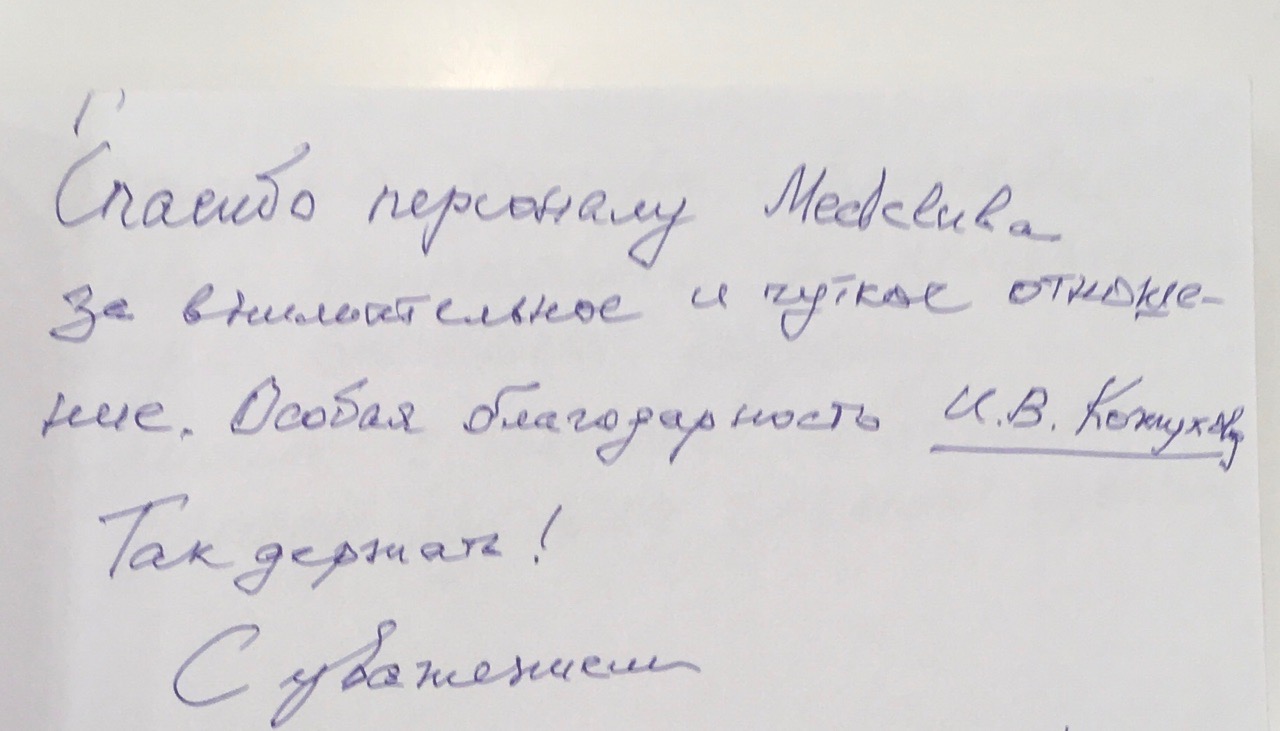 Спасибо персоналу Медсквива
за внимательное и чуткое отноше-
ние. Особая благодарность И.В. Кожухову
Так держать!
С уважением